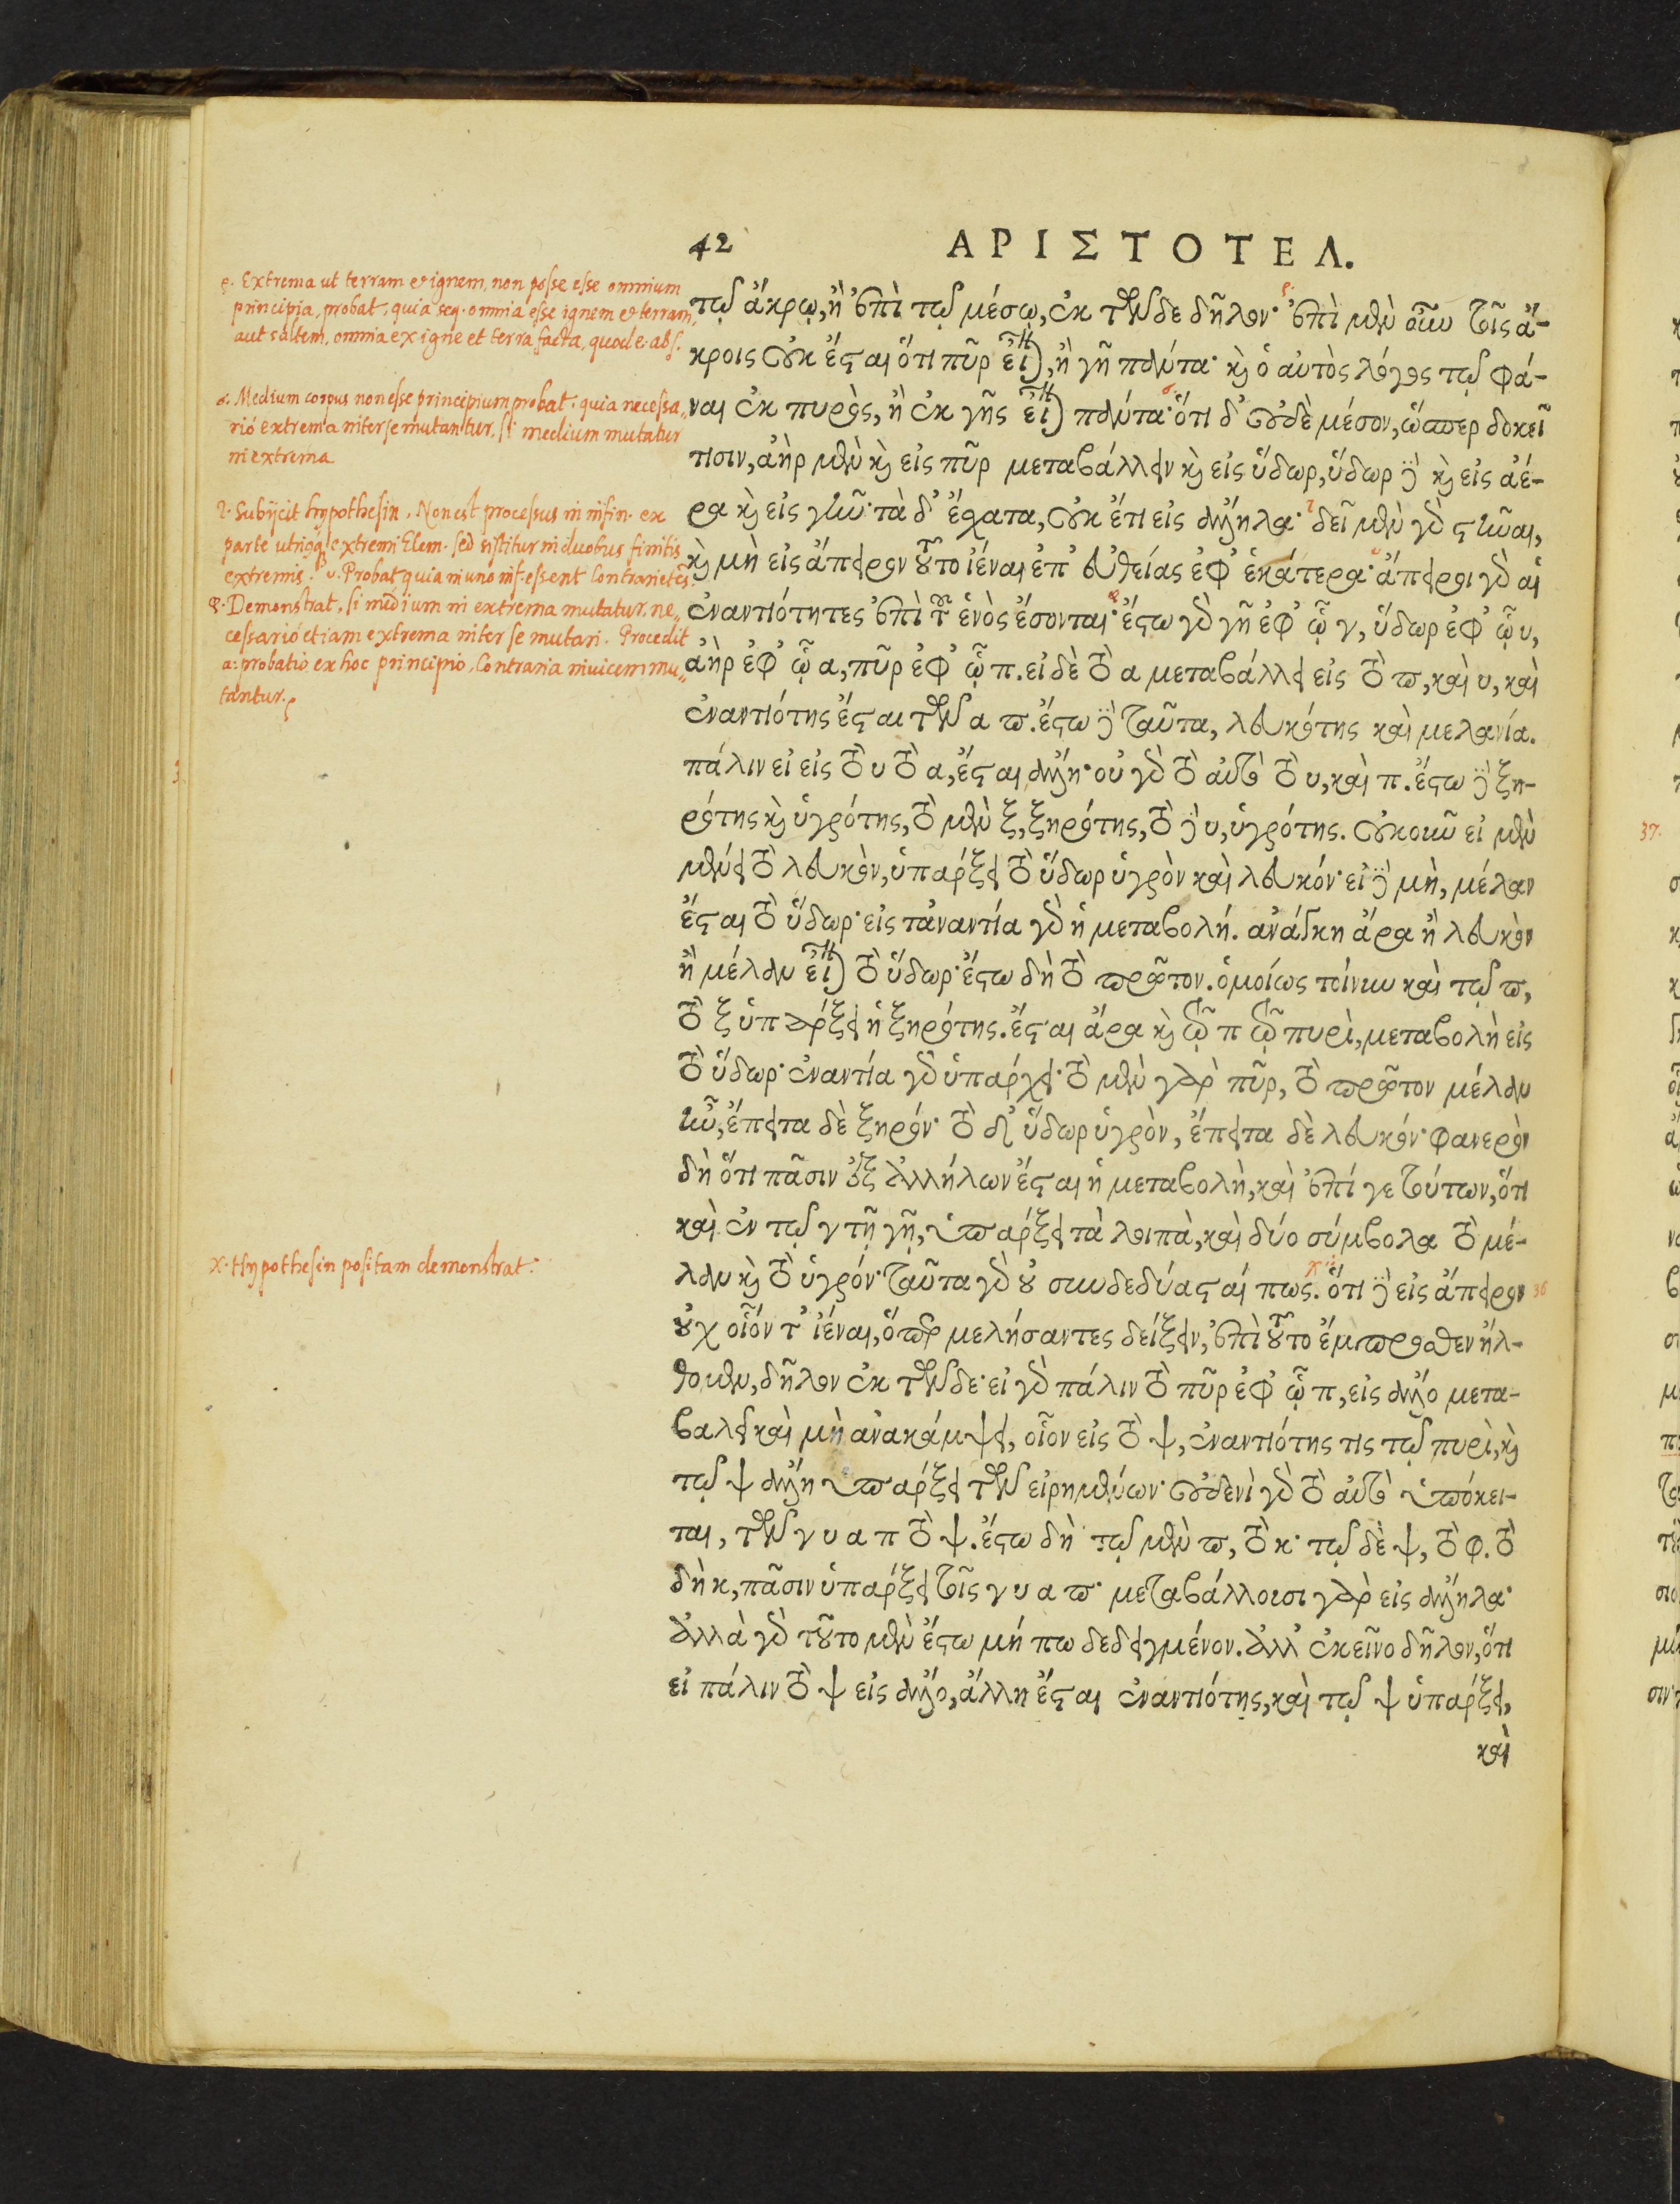 42 ΑΡΙΣΤΟΤΕΛ.
τῷ ἄκρῳ, ἢ ἐπὶ τῷ μέσῳ, ἐκ τῶνδε δῆλον· ἐπὶ μὲν οὖν τοῖς ἄ-
κροις οὐκ ἔσται ὅτι πῦρ εἴη, ἢ γῆ πάντα· καὶ ὁ αὐτὸς λόγος τῷ φά-
ναι ἐκ πυρὸς, ἢ ἐκ γῆς εἶναι πάντα· ὅτι δ' οὐδὲ μέσον, ὥσπερ δοκεῖ
τισιν, ἀὴρ μὲν καὶ εἰς πῦρ μεταβάλλειν καὶ εἰς ὕδωρ, ὕδωρ δὲ καὶ εἰς ἀέ-
ρα καὶ εἰς γῆν· τὰ δ' ἔσχατα, οὐκ ἔτι εἰς ἄλληλα· δεῖ μὲν γὰρ στῆναι,
καὶ μὴ εἰς ἄπειρον τοῦτο ἰέναι ἐπ' εὐθείας ἐφ' ἑκάτερα· ἄπειροι γὰρ αἱ
ἐναντιότητες ἐπὶ τοῦ ἑνὸς ἔσονται· ἔστω γὰρ γῆ ἐφ' ᾧ γ, ὕδωρ ἐφ' ᾧ υ,
ἀὴρ ἐφ' ᾧ α, πῦρ ἐφ' ᾧ π. εἰ δὲ τὸ α μεταβάλλει εἰς τὸ π, καὶ υ, καὶ
ἐναντιότης ἔσται τῶν α π. ἔστω δὲ ταῦτα, λευκότης καὶ μελανία.
πάλιν εἰ εἰς τὸ υ τὸ α, ἔσται ἄλλη· οὐ γὰρ τὸ αὐτὸ τὸ υ, καὶ π. ἔστω δὲ ξη-
ρότης καὶ ὑγρότης, τὸ μὲν ξ, ξηρότης, τὸ δὲ υ, ὑγρότης. οὐκοῦν εἰ μὲν
μένει τὸ λευκὸν, ὑπάρξει τὸ ὕδωρ ὑγρὸν καὶ λευκόν· εἰ δὲ μὴ, μέλαν
ἔσται τὸ ὕδωρ· εἰς τἀναντία γὰρ ἡ μεταβολή. ἀνάγκη ἄρα ἢ λευκὸν
ἢ μέλαν εἶναι τὸ ὕδωρ· ἔστω δὴ τὸ πρῶτον. ὁμοίως τοίνυν καὶ τῷ π,
τὸ ξ ὑπάρξει ἡ ξηρότης. ἔσται ἄρα καὶ τῷ π τῷ πυρὶ, μεταβολὴ εἰς
τὸ ὕδωρ· ἐναντία γὰρ ὑπάρχει· τὸ μὲν γὰρ πῦρ, τὸ πρῶτον μέλαν
ἦν, ἔπειτα δὲ ξηρόν· τὸ δὲ ὕδωρ ὑγρὸν, ἔπειτα δὲ λευκόν· φανερὸν
δὴ ὅτι πᾶσιν ἐξ ἀλλήλων ἔσται ἡ μεταβολὴ, καὶ ἐπί γε τούτων, ὅτι
καὶ ἐν τῷ γ τῇ γῇ, ὑπάρξει τὰ λοιπὰ, καὶ δύο σύμβολα τὸ μέ-
λαν καὶ τὸ ὑγρόν· ταῦτα γὰρ οὐ συνδεδύασταί πως. ὅτι δὲ εἰς ἄπειρον
οὐχ οἷόν τ' ἰέναι, ὅπερ μελήσαντες δείξειν, ἐπὶ τοῦτο ἔμπροσθεν ἤλ-
θομεν, δῆλον ἐκ τῶνδε· εἰ γὰρ πάλιν τὸ πῦρ ἐφ' ᾧ π, εἰς ἄλλο μετα-
βαλεῖ καὶ μὴ ἀνακάμψει, οἷον εἰς τὸ ψ, ἐναντιότης τις τῷ πυρὶ, καὶ
τῷ ψ ἄλλη ὑπάρξει τῶν εἰρημένων· οὐδενὶ γὰρ τὸ αὐτὸ ὑπόκει-
ται, τῶν γ υ α π τὸ ψ. ἔστω δὴ τῷ μὲν π, τὸ κ· τῷ δὲ ψ, τὸ φ. τὸ
δὴ κ, πᾶσιν ὑπάρξει τοῖς γ υ α π· μεταβάλλουσι γὰρ εἰς ἄλληλα·
ἀλλὰ γὰρ τοῦτο μὲν ἔστω μή πω δεδειγμένον. ἀλλ' ἐκεῖνο δῆλον, ὅτι
εἰ πάλιν τὸ ψ εἰς ἄλλο, ἄλλη ἔσται ἐναντιότης, καὶ τῷ ψ ὑπάρξει,
καὶ
ρ. Extrema ut terram et ignem, non posse esse omnium
principia, probat, quia seq. omnia esse ignem et terram,
aut saltem, omnia ex igne et terra facta, quod e. abs.
σ. Medium corpus non esse principium probat, quia necessa„
riò extrema inter se mutantur, si medium mutatur
in extrema
τ. Subijcit hypothesin. Non est processus in infin. ex
parte utriqq́ extremi Elem. sed sistitur in duobus finitis
extremis. υ. Probat quia in uno inf. essent Contrarietẽs.
φ. Demonstrat, si medium in extrema mutatur, ne„
cessariò etiam extrema inter se mutari. Procedit
a: probatio ex hoc principio, Contraria invicem mu„
tantur.
χ. Hypothesin positam demonstrat.
36
37.